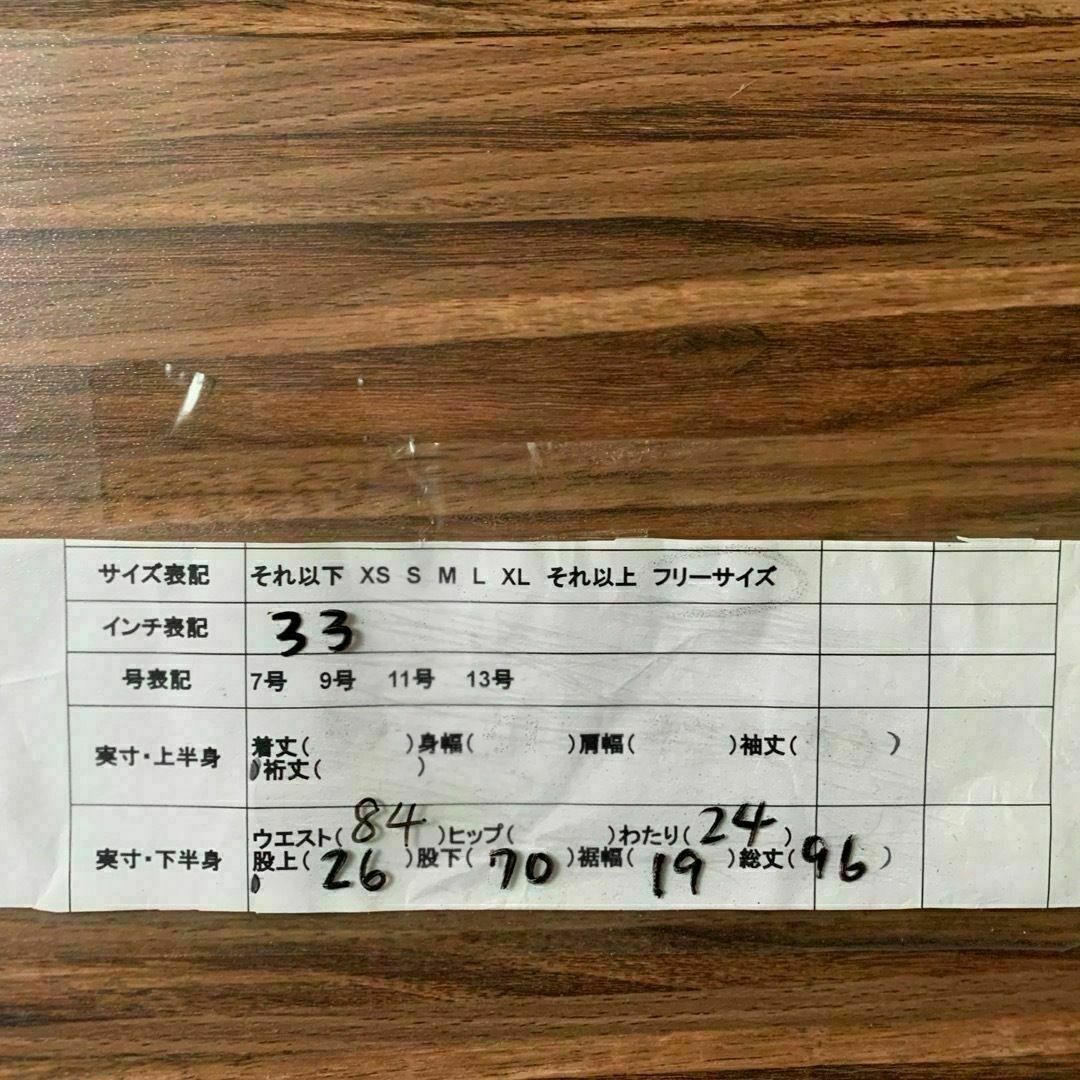 サイズ表記 それ以下 XS S M L XL それ以上 フリーサイズ
インチ表記 33
号表記 7号 9号 11号 13号
実寸・上半身 着丈( )身幅( )肩幅( )袖丈( )
)裄丈( )
実寸・下半身 ウエスト(84)ヒップ( )わたり(24)
股上(26)股下(70)裾幅(19)総丈(96)